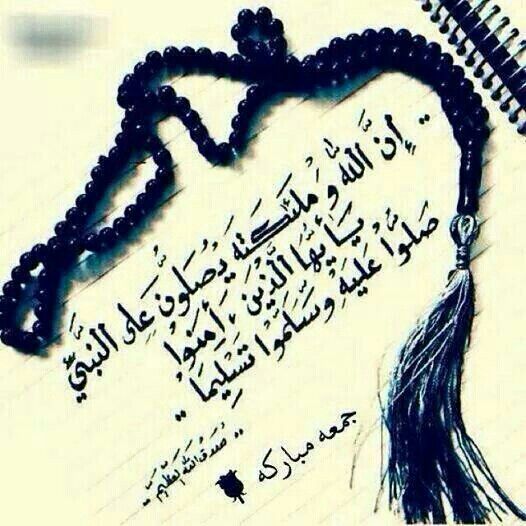 .. إِنَّ اللَّهَ وَ مَلَئكَتَه يَصَلُونَ عَلى النَّبيِّ
يَا أَيُّهَا الَّذِينَ ءَامَنَوا
صَلُّوا عَلَيَهِ وَسَلَمُّوا تَسَلِيمَا ..
.. صَدَقَ اللهُ العَظِيّم ..
جمعه مباركه